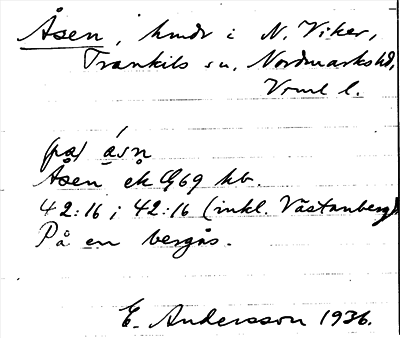 Åsen, hmdr i N. Viker,
Trankils sn, Nordmarks hd,
Vrml l.
(på) åsn
Åsen ek G69 hb.
42:16; 42:16 (inkl. Västanberg)
På en bergås.
E. Andersson 1936.